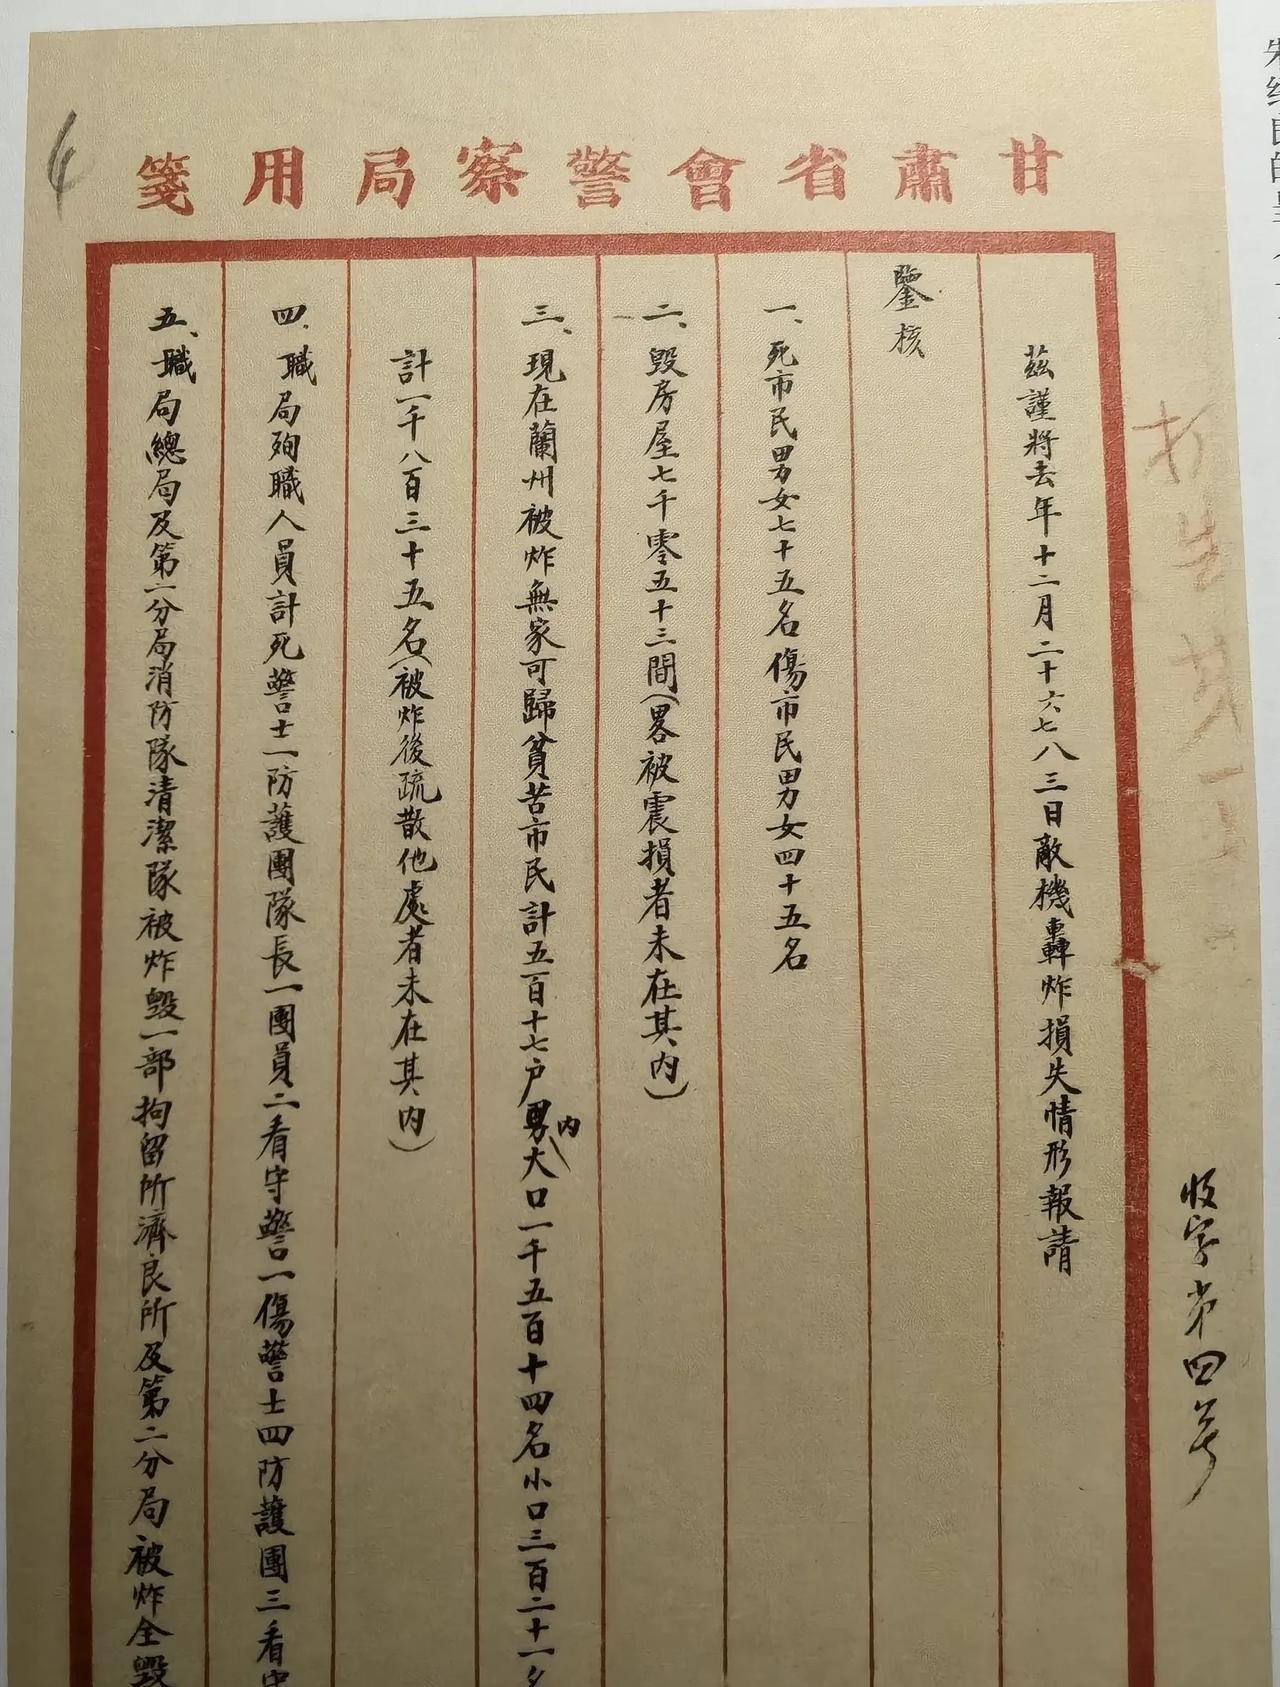 甘肅省會警察局用箋
收字第四号
茲謹將去年十二月二十六七八三日敵機轟炸損失情形報請
鑒核
一、死市民男女七十五名傷市民男女四十五名
二、毀房屋七千零五十三間（畧被震損者未在其內）
三、現在蘭州被炸無家可歸貧苦市民計五百十七户內男大口一千五百十四名小口三百二十一名
計一千八百三十五名（被炸後疏散他處者未在其內）
四、職局殉職人員計死警士一防護團隊長一團員二看守警一傷警士四防護團三看守
五、職局總局及第一分局消防隊清潔隊被炸毀一部拘留所濟良所及第二分局被炸全毀